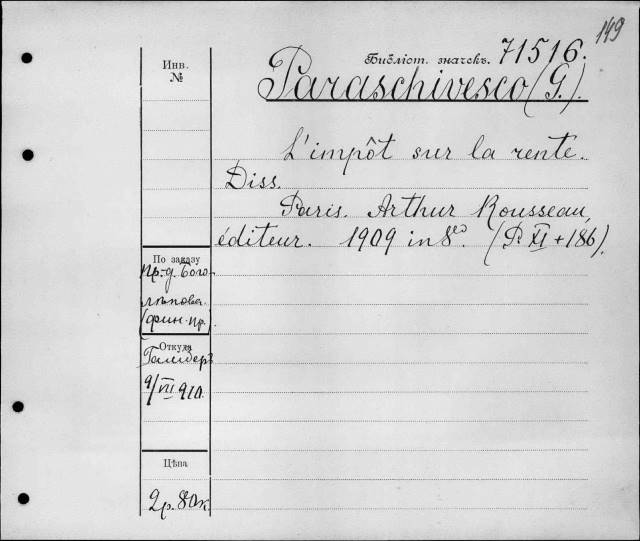 149
Библіот. значекъ. 71516.
Инв.
№
Paraschivesco (G.).
L'impôt sur la rente.
Diss.
Paris. Arthur Rousseau,
éditeur. 1909 in 8º. (P. XI + 186).
По заказу
Пр.-д. Бого-
лѣпова.
(фин. пр.)
Откуда
9/VII 910.
Цѣна
2р. 80к.